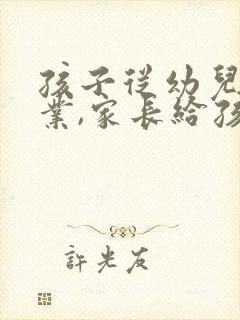 孩子從幼兒
業,家長給孩
許光友